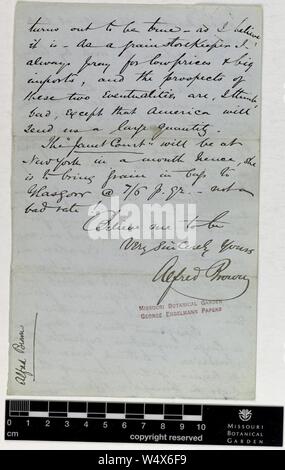 turns out to be true – as I believe
it is – As a grain Storekeeper I
always pray for low prices & big
imports, and the prospects of
these two eventualities, are, I think,
bad, except that America will
send us a large quantity.
The "Janet Court" will be at
New York in a month hence, she
is to bring grain in bags to
Glasgow @ 7/6 p. qr. – not a
bad rate!
Believe me to be
Very Sincerely Yours
Alfred Brown
MISSOURI BOTANICAL GARDEN
GEORGE ENGELMANN PAPERS
Alfred Brown
0 1 2 3 4 5 6 7 8 9 10
cm
copyright reserved
MISSOURI
BOTANICAL
GARDEN
alamy
Image ID: W4X6F9
www.alamy.com